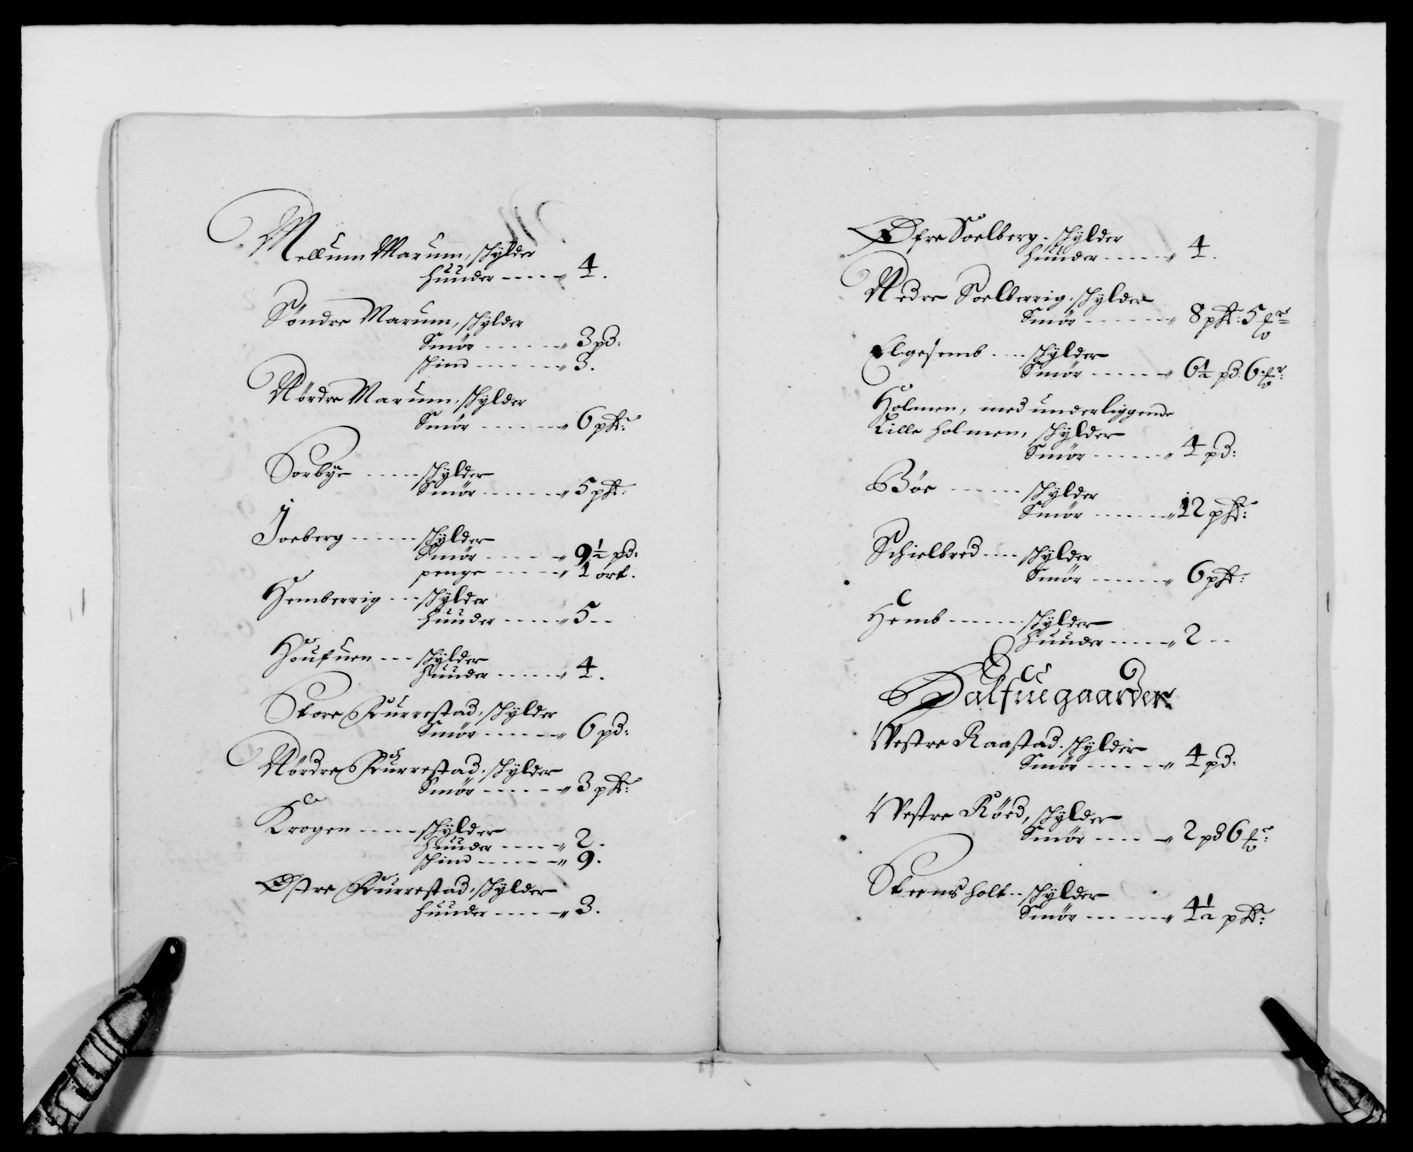 Mellum Marum, schylder
Huuder - - - - „ 4.
Søndre Marum, schylder
Smør - - - - - „ 3 pd:
schind - - - - - „ 3.
Nørdre Marum, schylder
Smør - - - - - „ 6 pft:
Sorbye - - - - schylder
Smør - - - - - „ 5 pft:
Joeberg - - - - schylder
Smør - - - - - „ 9½ pd:
penge - - - - - „ 1 ort.
Hemberrig - - schylder
Huuder - - - - „ 5 - -
Houfuen - - - schylder
Huuder - - - - „ 4.
Store Furrestad, schylder
Smør - - - - - „ 6 pd:
Nørdre Furrestad, schylder
Smør - - - - - „ 3 pft:
Krogen - - - - schylder
Huuder - - - - „ 2 -
schind - - - - - „ 9.
Østre Furrestad, schylder
Huuder - - - - „ 3.
Øfre Soelberg - schylder
Huuder - - - - „ 4.
Nedre Soelberrig, schylder
Smør - - - - - „ 8 pft: 5
Elgesemb - - - schylder
Smør - - - - - „ 6½ pd 6
Holmen, med underliggende
Lille Holmen, schylder
Smør - - - - - „ 4 pd:
Bøe - - - - - schylder
Smør - - - - - „ 12 pft:
Schielbred - - - schylder
Smør - - - - - „ 6 pft:
Hemb - - - - - schylder
Huuder - - - - „ 2 - -
Halfuegaarder
Westre Raastad, schylder
Smør - - - - - „ 4 pd.
Westre Røed, schylder
Smør - - - - „ 2 pd 6
Steensholt - - schylder
Smør - - - - - „ 4½ pft: